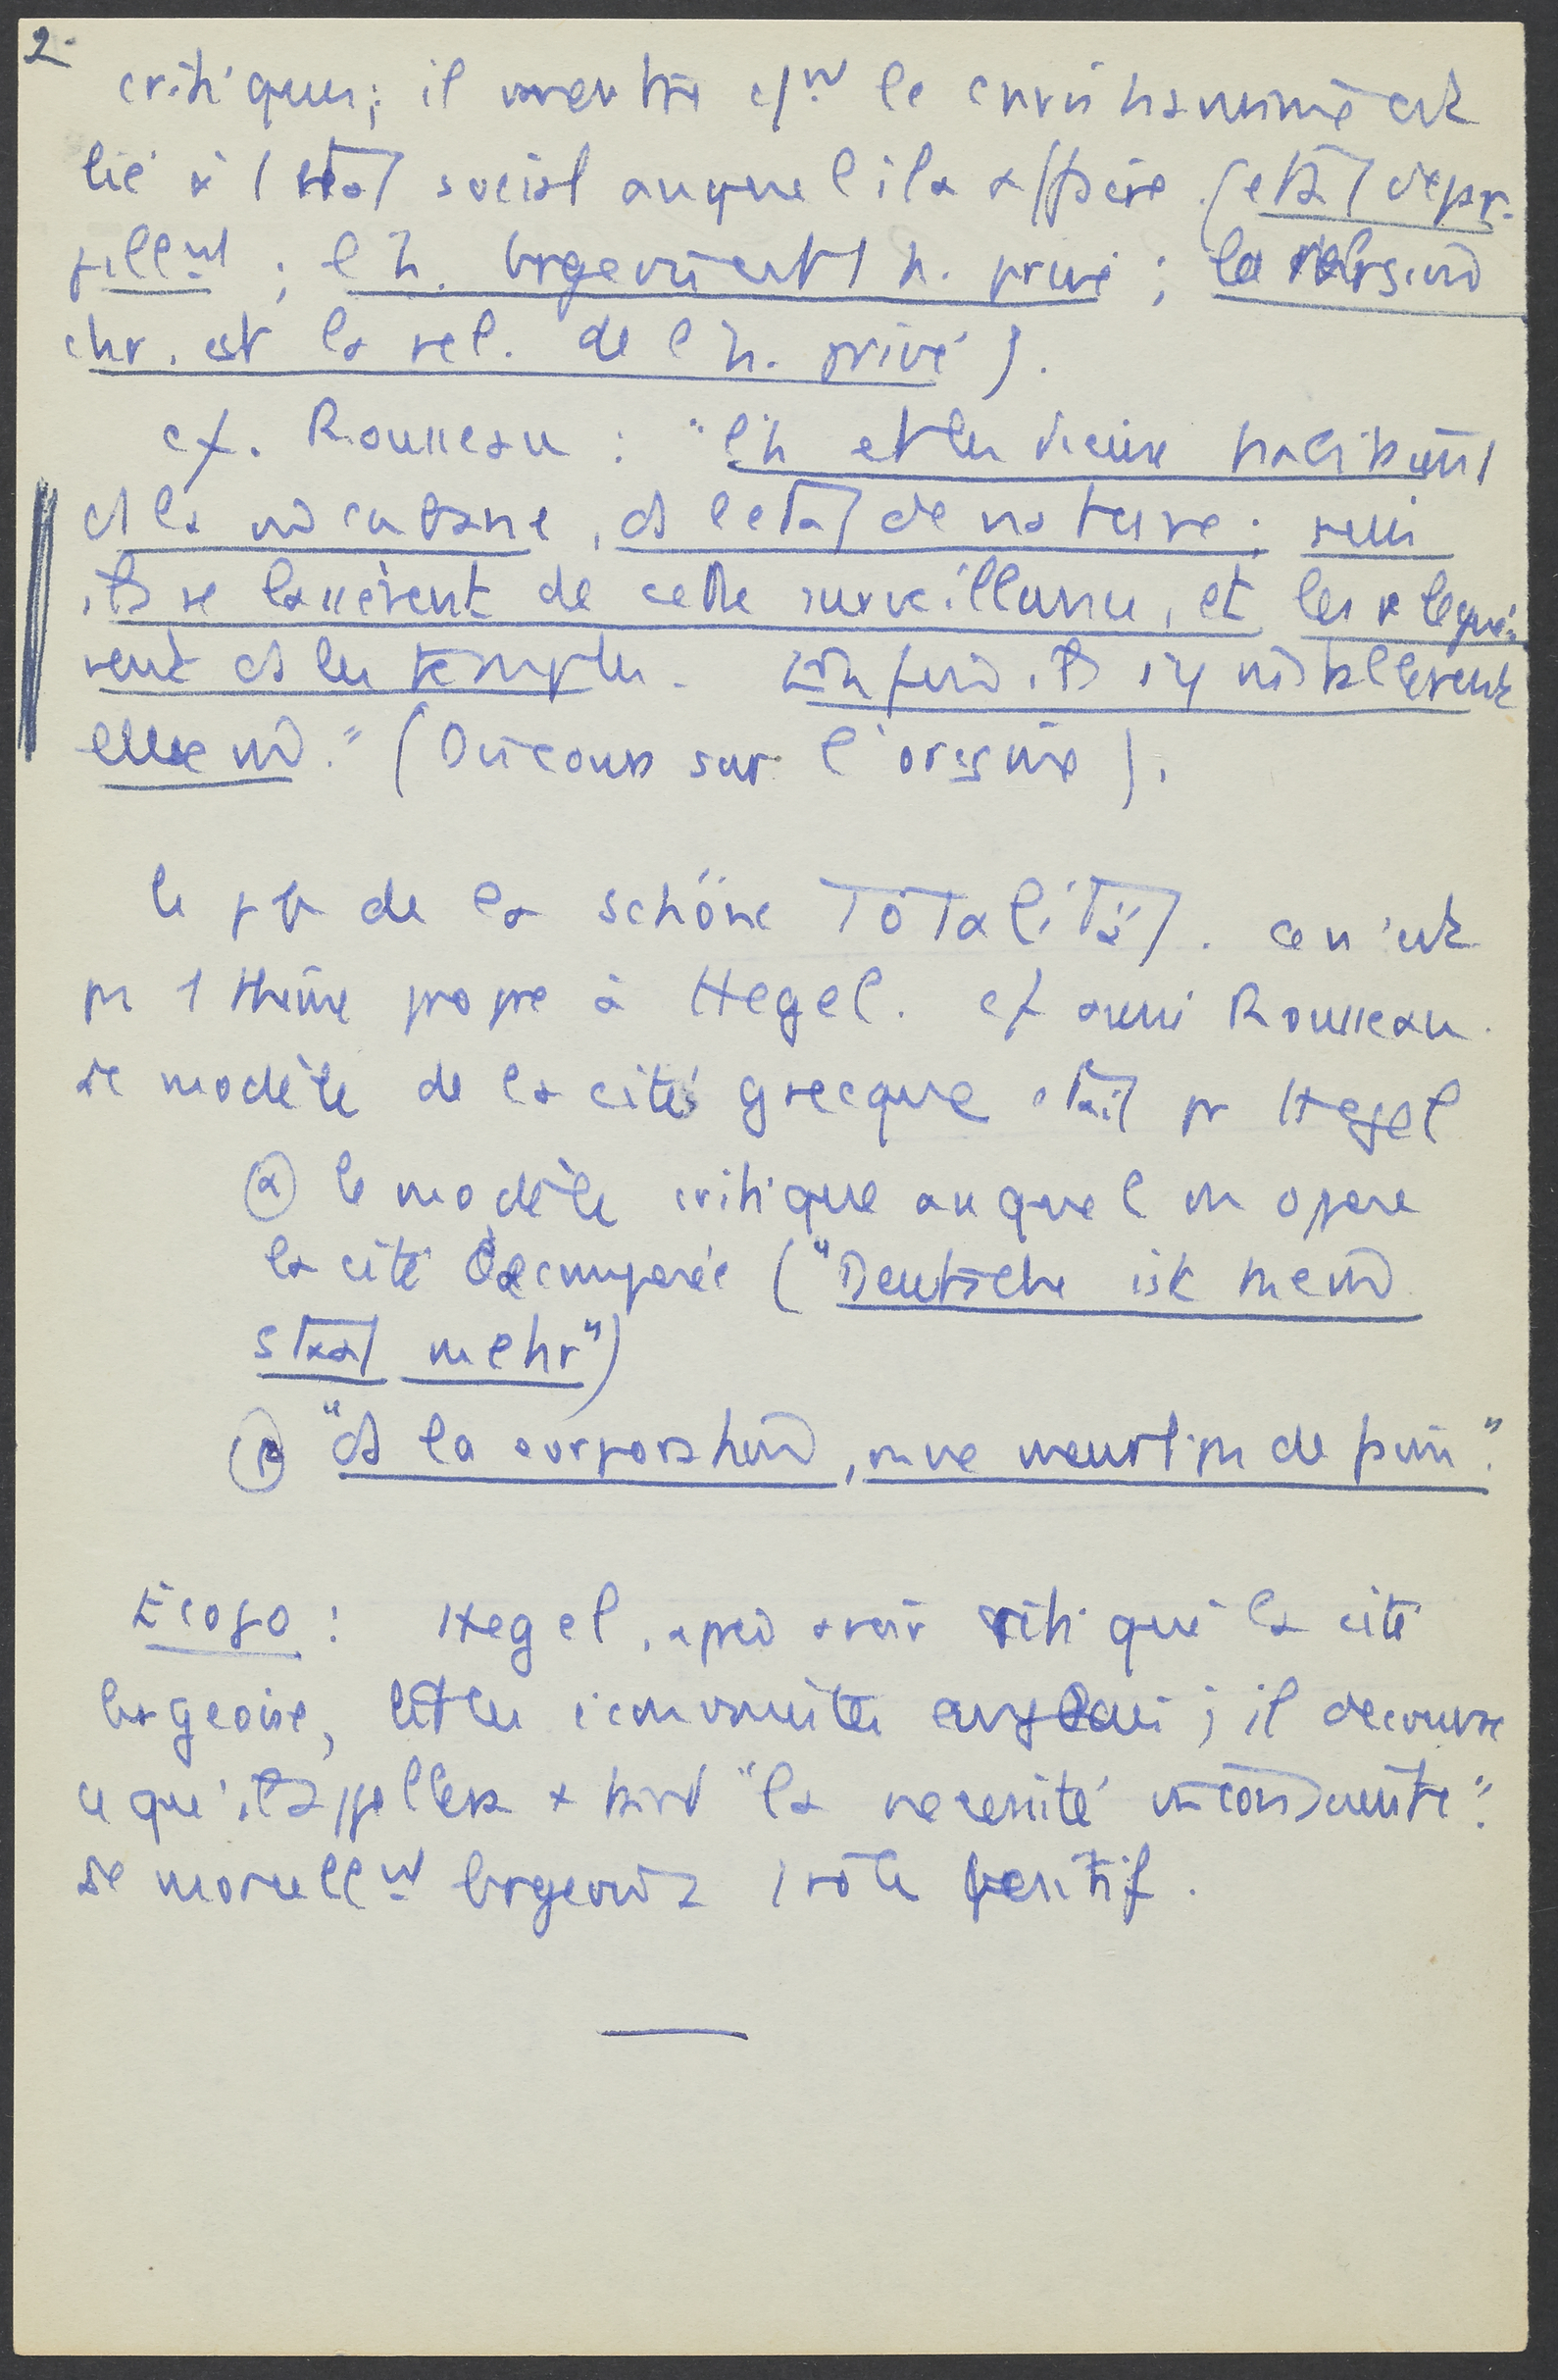 2.
critique; il montre c/m̲t̲ le christianisme est
lié à 1 état social auquel il a affaire (état d'épar-
pillm̲t̲ ; l'h. brgeois est 1 h. privé ; la religion
chr. est la rel. de l'h. privé).
cf. Rousseau : "l'h et les dieux habitaient
ds la m̂ cabane, ds l'état de nature ; mais
ils se lassèrent de cette surveillance, et les reléguè-
rent ds les temples. Enfin, ils s'y installèrent
eux m̂." (Discours sur l'origine).
le pb de la schöne Totalität. ce n'est
pas 1 thème propre à Hegel. cf aussi Rousseau.
Le modèle de la cité grecque était pr Hegel
ⓐ le modèle critique auquel on oppose
la cité décomposée ("Deutsche ist kein
staat mehr")
ⓑ "ds la corporation, on ne meurt pas de faim".
Ecopo : Hegel, après avoir critiqué la cité
brgeoise, lit les économistes anglais ; il découvre
ce qu'il appellera + tard "la nécessité inconsciente".
Le morcellm̲t̲ brgeois a 1 rôle positif.